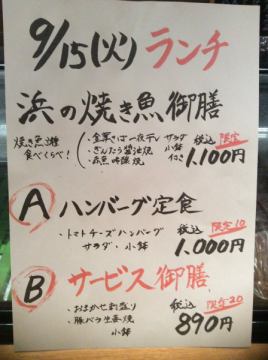 9/15(火) ランチ
浜の焼き魚御膳
焼き魚3種 ・金華さば一夜干し サラダ 税込 限定
食べくらべ! ・ぎんだら醤油焼 小鉢
・赤魚吟醸焼 付き 1,100円
A ハンバーグ定食
・トマトチーズハンバーグ 税込 限定10
サラダ・小鉢 1,000円
B サービス御膳
・おまかせ刺盛り 税込 限定20
・豚バラ生姜焼 890円
小鉢